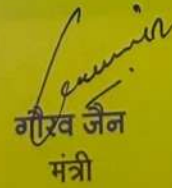 गौरव जैन
मंत्री